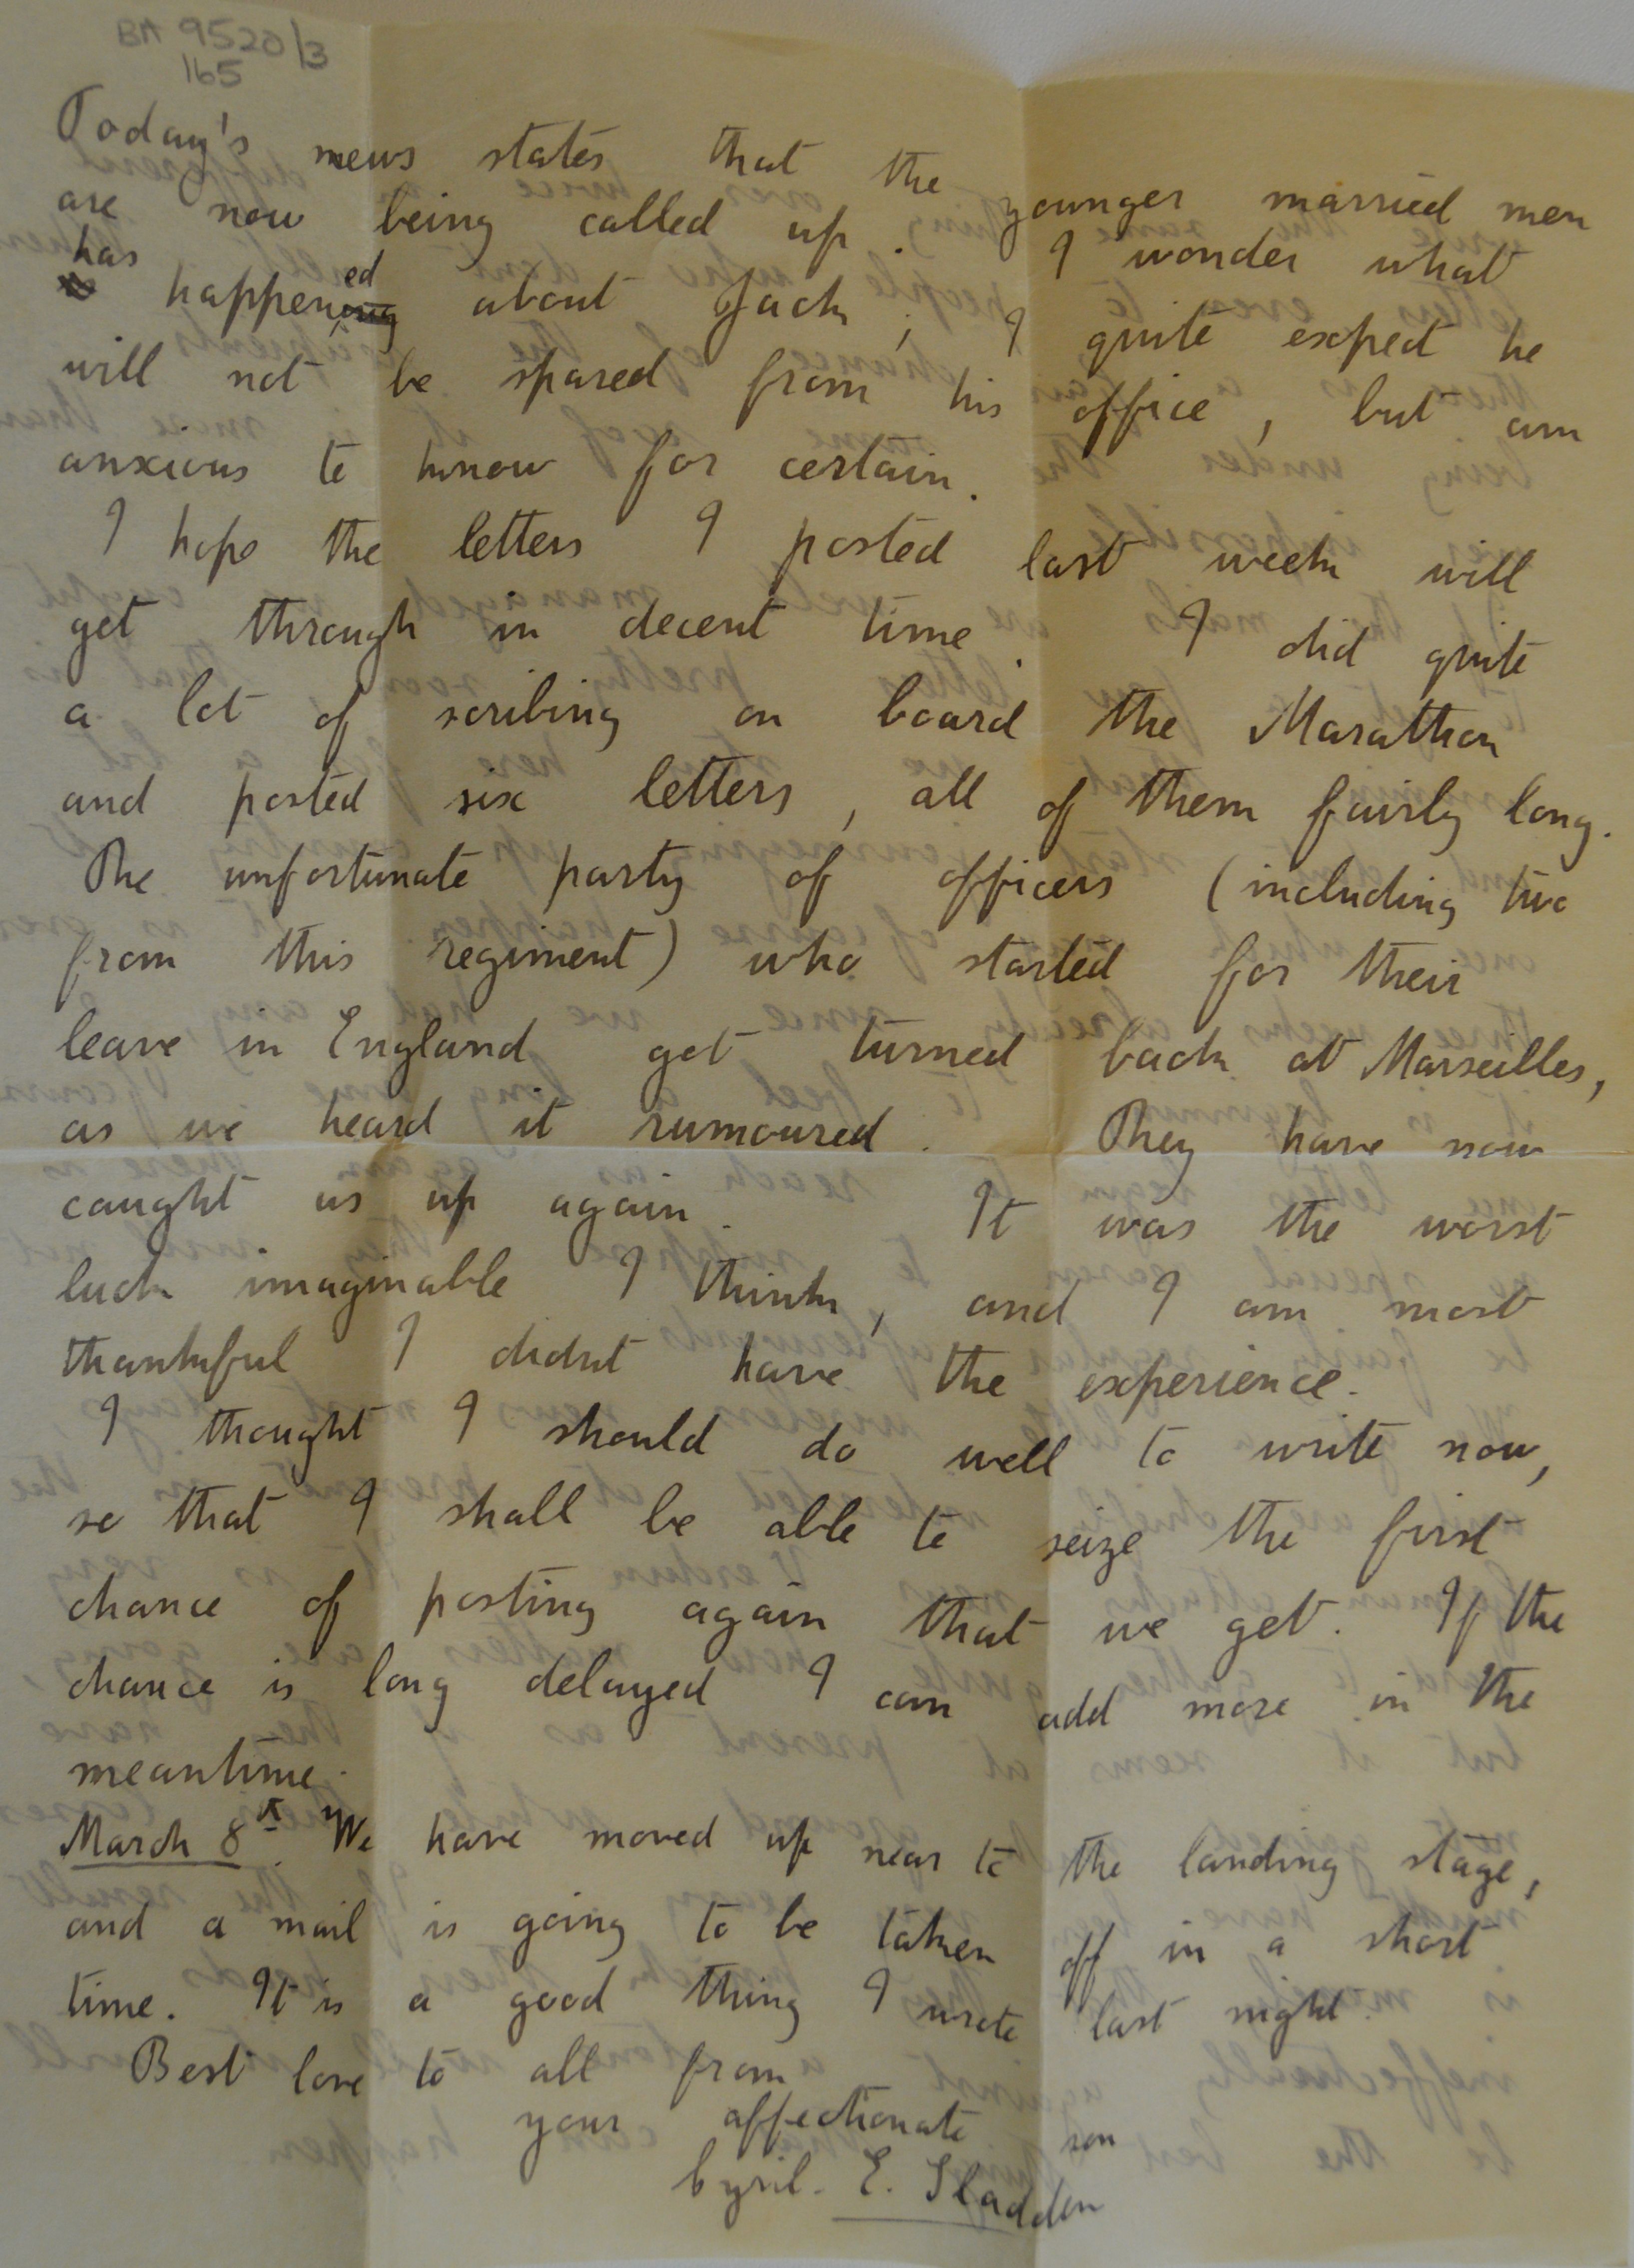 BA 9520/3
165
Today's news states that the younger married men
are now being called up. I wonder what
has happened about Jack; I quite expect he
will not be spared from his office, but am
anxious to know for certain.
I hope the letters I posted last week will
get through in decent time. I did quite
a lot of scribing on board the Marathon
and posted six letters, all of them fairly long.
The unfortunate party of officers (including two
from this regiment) who started for their
leave in England got turned back at Marseilles,
as we heard it rumoured. They have now
caught us up again. It was the worst
luck imaginable I think, and I am most
thankful I didnt have the experience.
I thought I should do well to write now,
so that I shall be able to seize the first
chance of posting again that we get. If the
chance is long delayed I can add more in the
meantime.
March 8th. We have moved up near to the landing stage,
and a mail is going to be taken off in a short
time. It is a good thing I wrote last night.
Best love to all from
your affectionate son
Cyril. E. Sladden